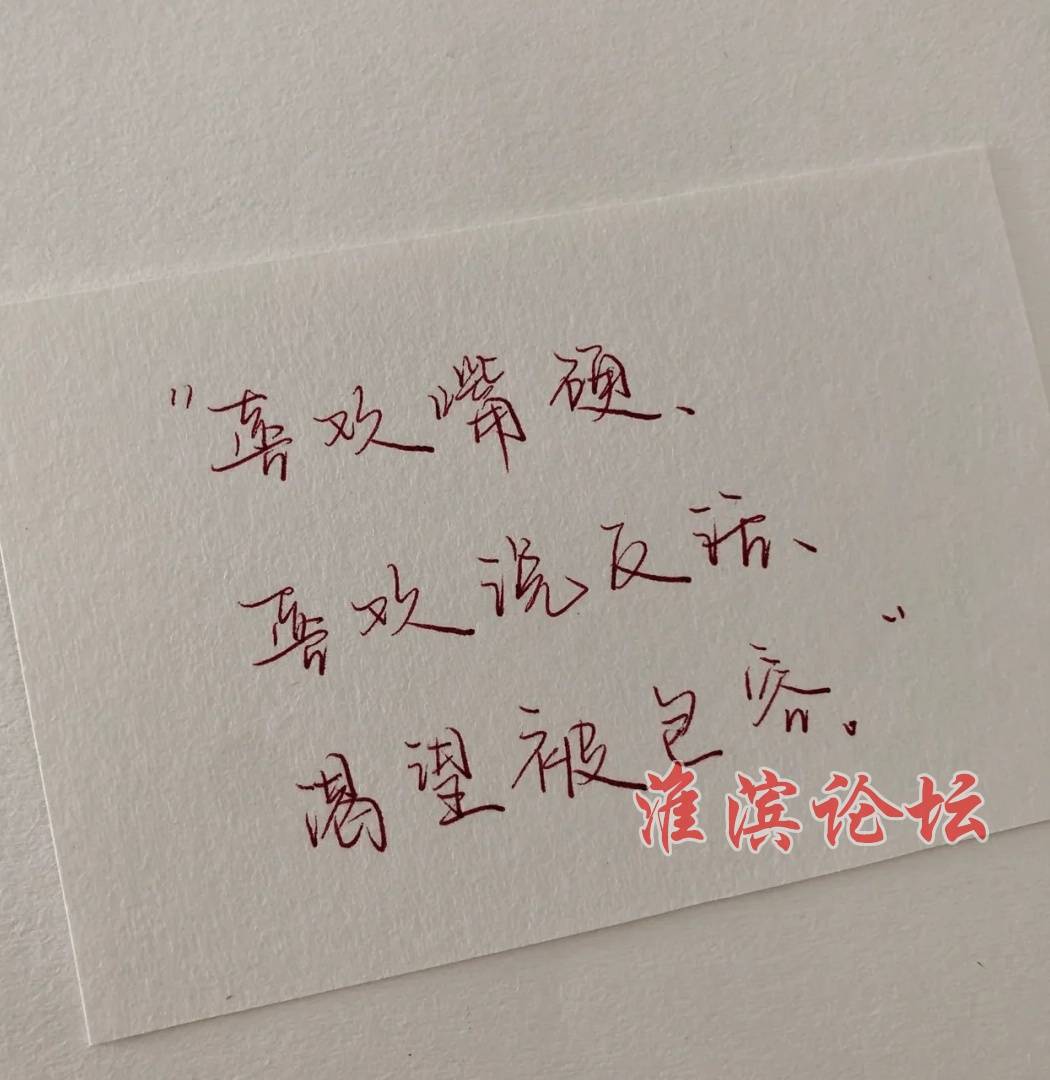 "喜欢嘴硬、
喜欢说反话、
渴望被包容。"
淮滨论坛